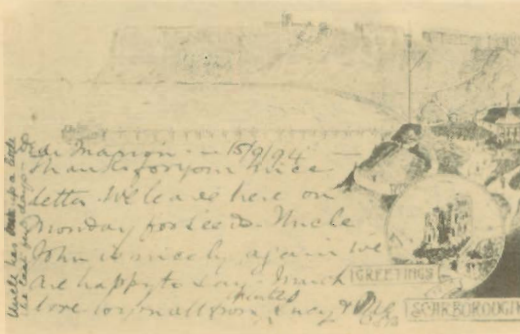 Dear Marion - 15/9/94 -
Thanks for your nice
letter. We leave here on
Monday for Leeds. Uncle
John is nicely again we
are happy to say. Much
love to you all from
Uncle has
GREETINGS
SCARBOROUGH